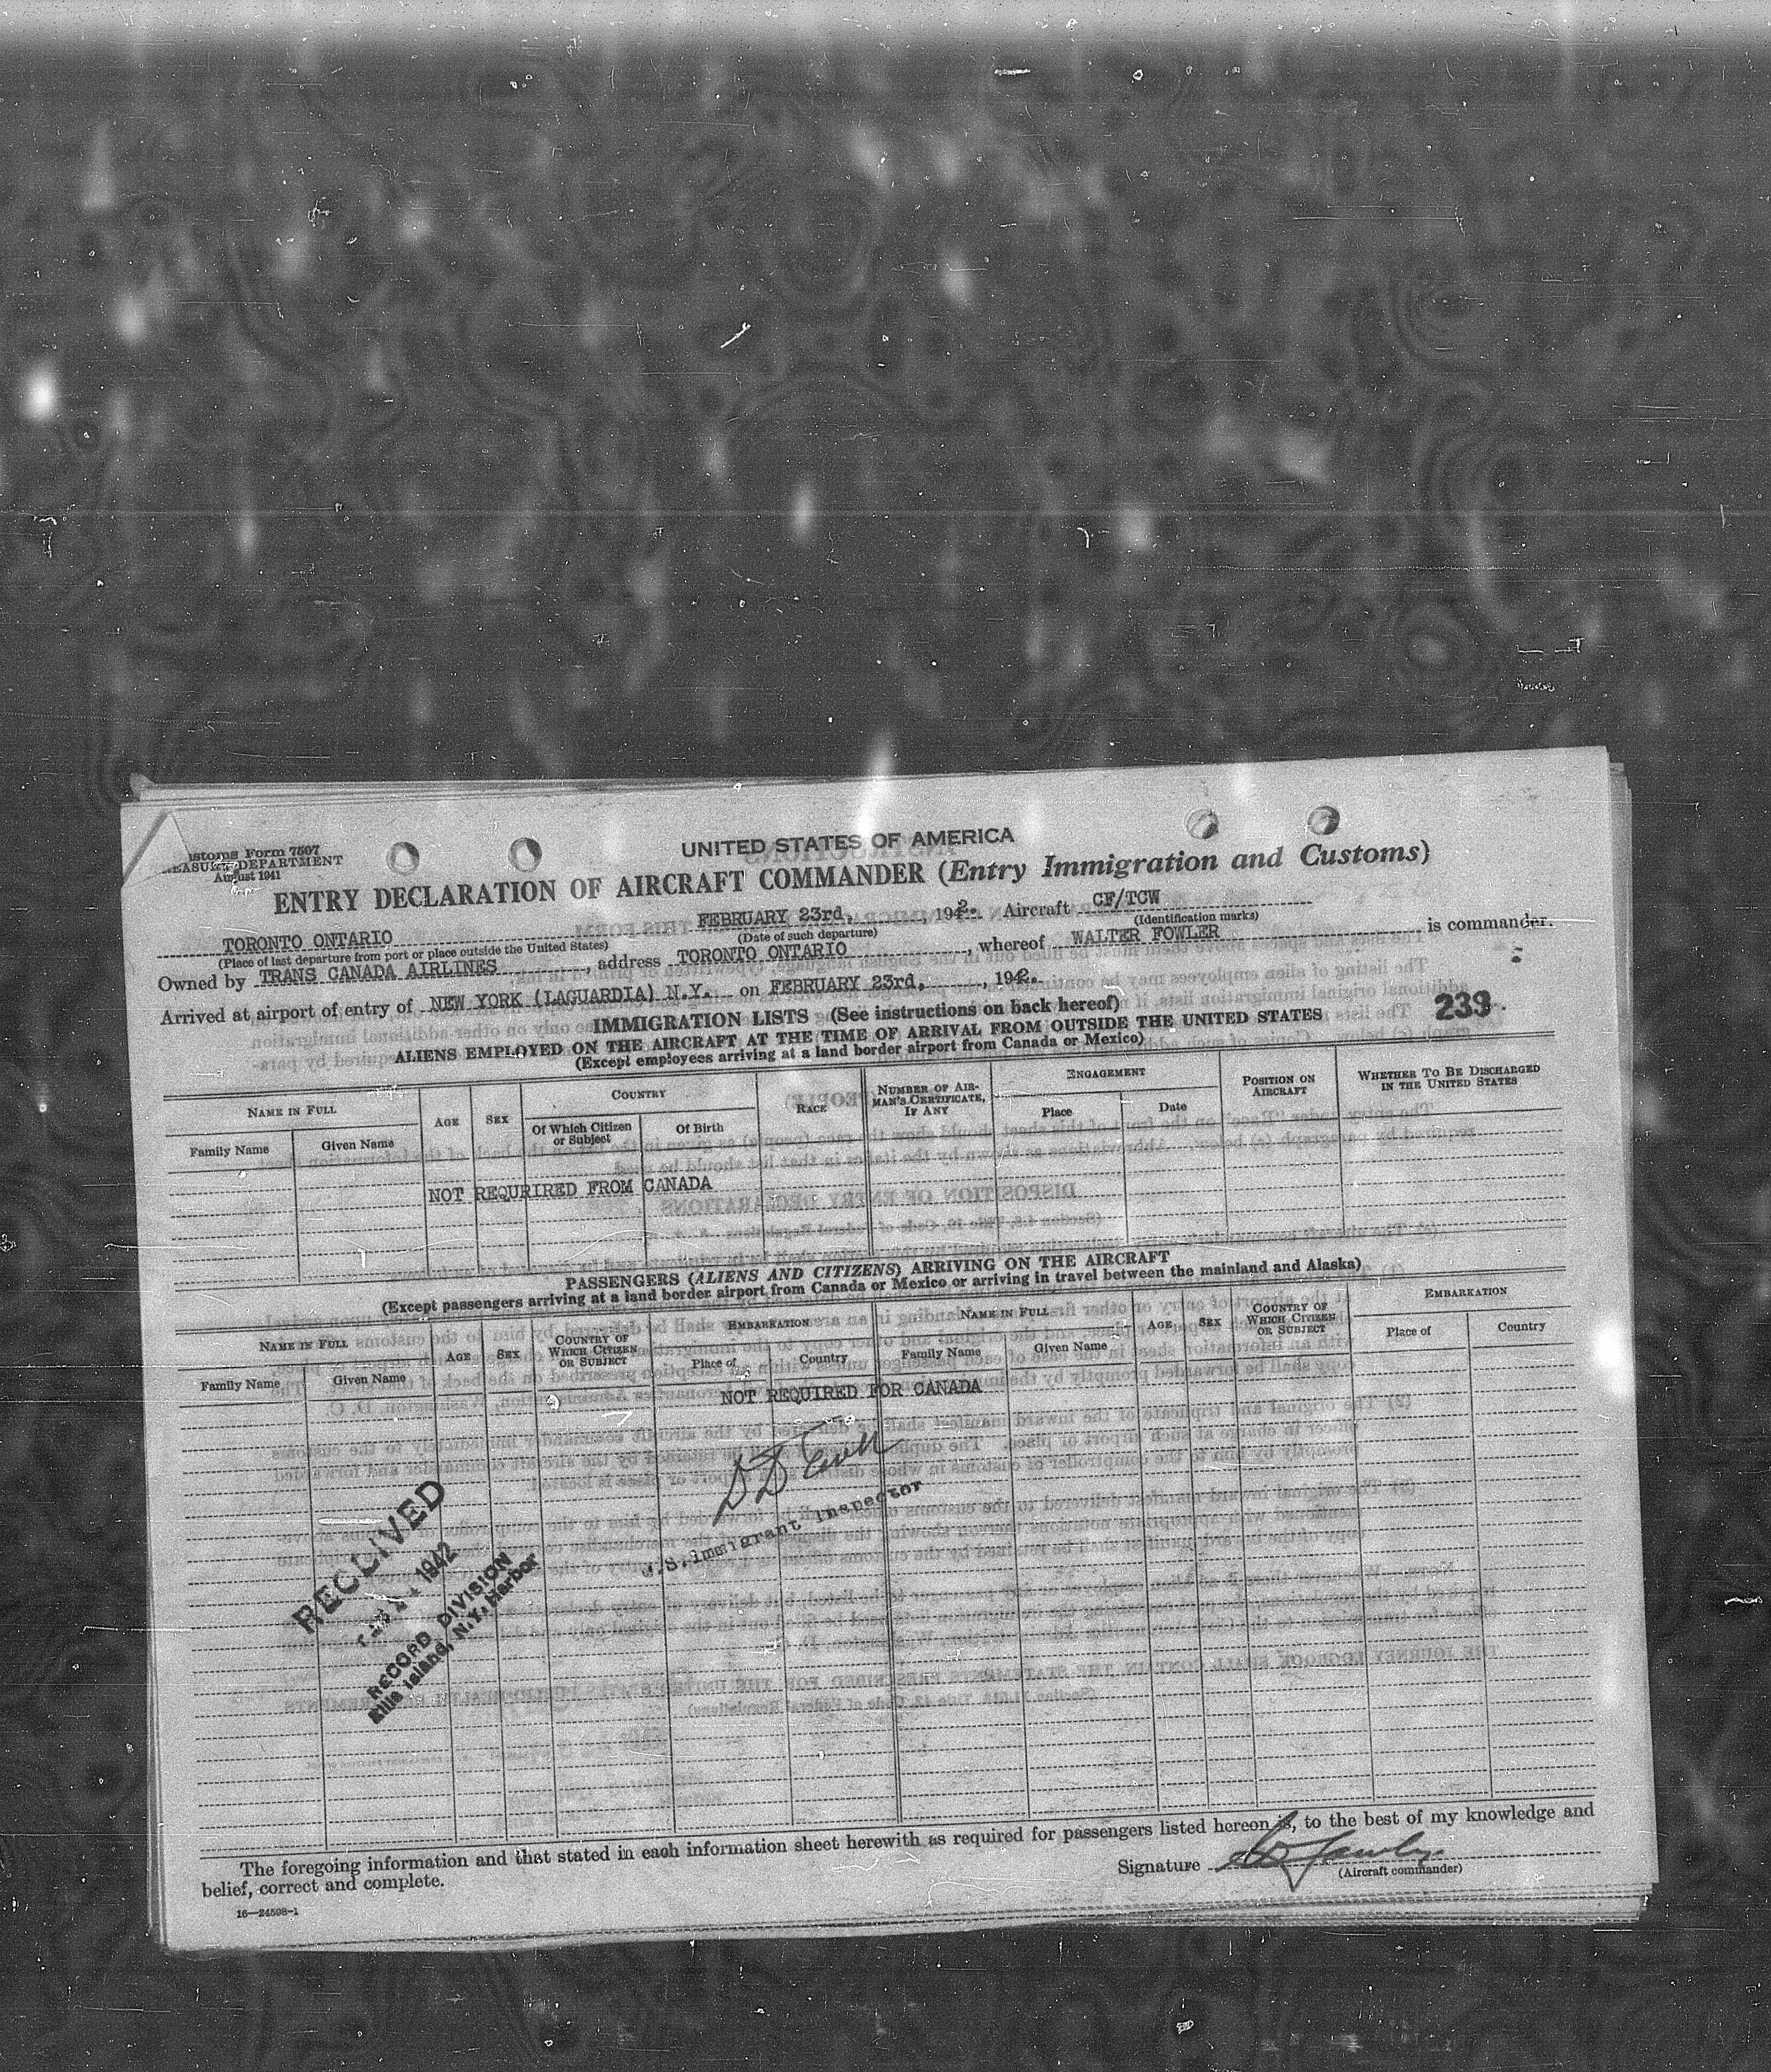 Customs Form 7507
TREASURY DEPARTMENT
August 1941
UNITED STATES OF AMERICA
ENTRY DECLARATION OF AIRCRAFT COMMANDER (Entry Immigration and Customs)
TORONTO ONTARIO FEBRUARY 23rd, , 1942. Aircraft CF/TCW
(Place of last departure from port or place outside the United States) (Date of such departure) (Identification marks)
Owned by TRANS CANADA AIRLINES , address TORONTO ONTARIO , whereof WALTER FOWLER is commander.
Arrived at airport of entry of NEW YORK (LAGUARDIA) N.Y. on FEBRUARY 23rd, , 1942.
239
IMMIGRATION LISTS (See instructions on back hereof)
ALIENS EMPLOYED ON THE AIRCRAFT AT THE TIME OF ARRIVAL FROM OUTSIDE THE UNITED STATES
(Except employees arriving at a land border airport from Canada or Mexico)
NAME IN FULL AGE SEX COUNTRY RACE NUMBER OF AIRMAN'S CERTIFICATE, IF ANY ENGAGEMENT POSITION ON AIRCRAFT WHETHER TO BE DISCHARGED IN THE UNITED STATES
Family Name Given Name Of Which Citizen or Subject Of Birth Place Date
NOT REQURIRED FROM CANADA
PASSENGERS (ALIENS AND CITIZENS) ARRIVING ON THE AIRCRAFT
(Except passengers arriving at a land border airport from Canada or Mexico or arriving in travel between the mainland and Alaska)
NAME IN FULL AGE SEX COUNTRY OF WHICH CITIZEN OR SUBJECT EMBARKATION NAME IN FULL AGE SEX COUNTRY OF WHICH CITIZEN OR SUBJECT EMBARKATION
Family Name Given Name Place of Country Family Name Given Name Place of Country
NOT REQUIRED FOR CANADA
U.S. Immigrant Inspector
RECEIVED
1942
RECORD DIVISION
Ellis Island, N.Y. Harbor
The foregoing information and that stated in each information sheet herewith as required for passengers listed hereon is, to the best of my knowledge and
belief, correct and complete.
Signature
(Aircraft commander)
16—24598-1